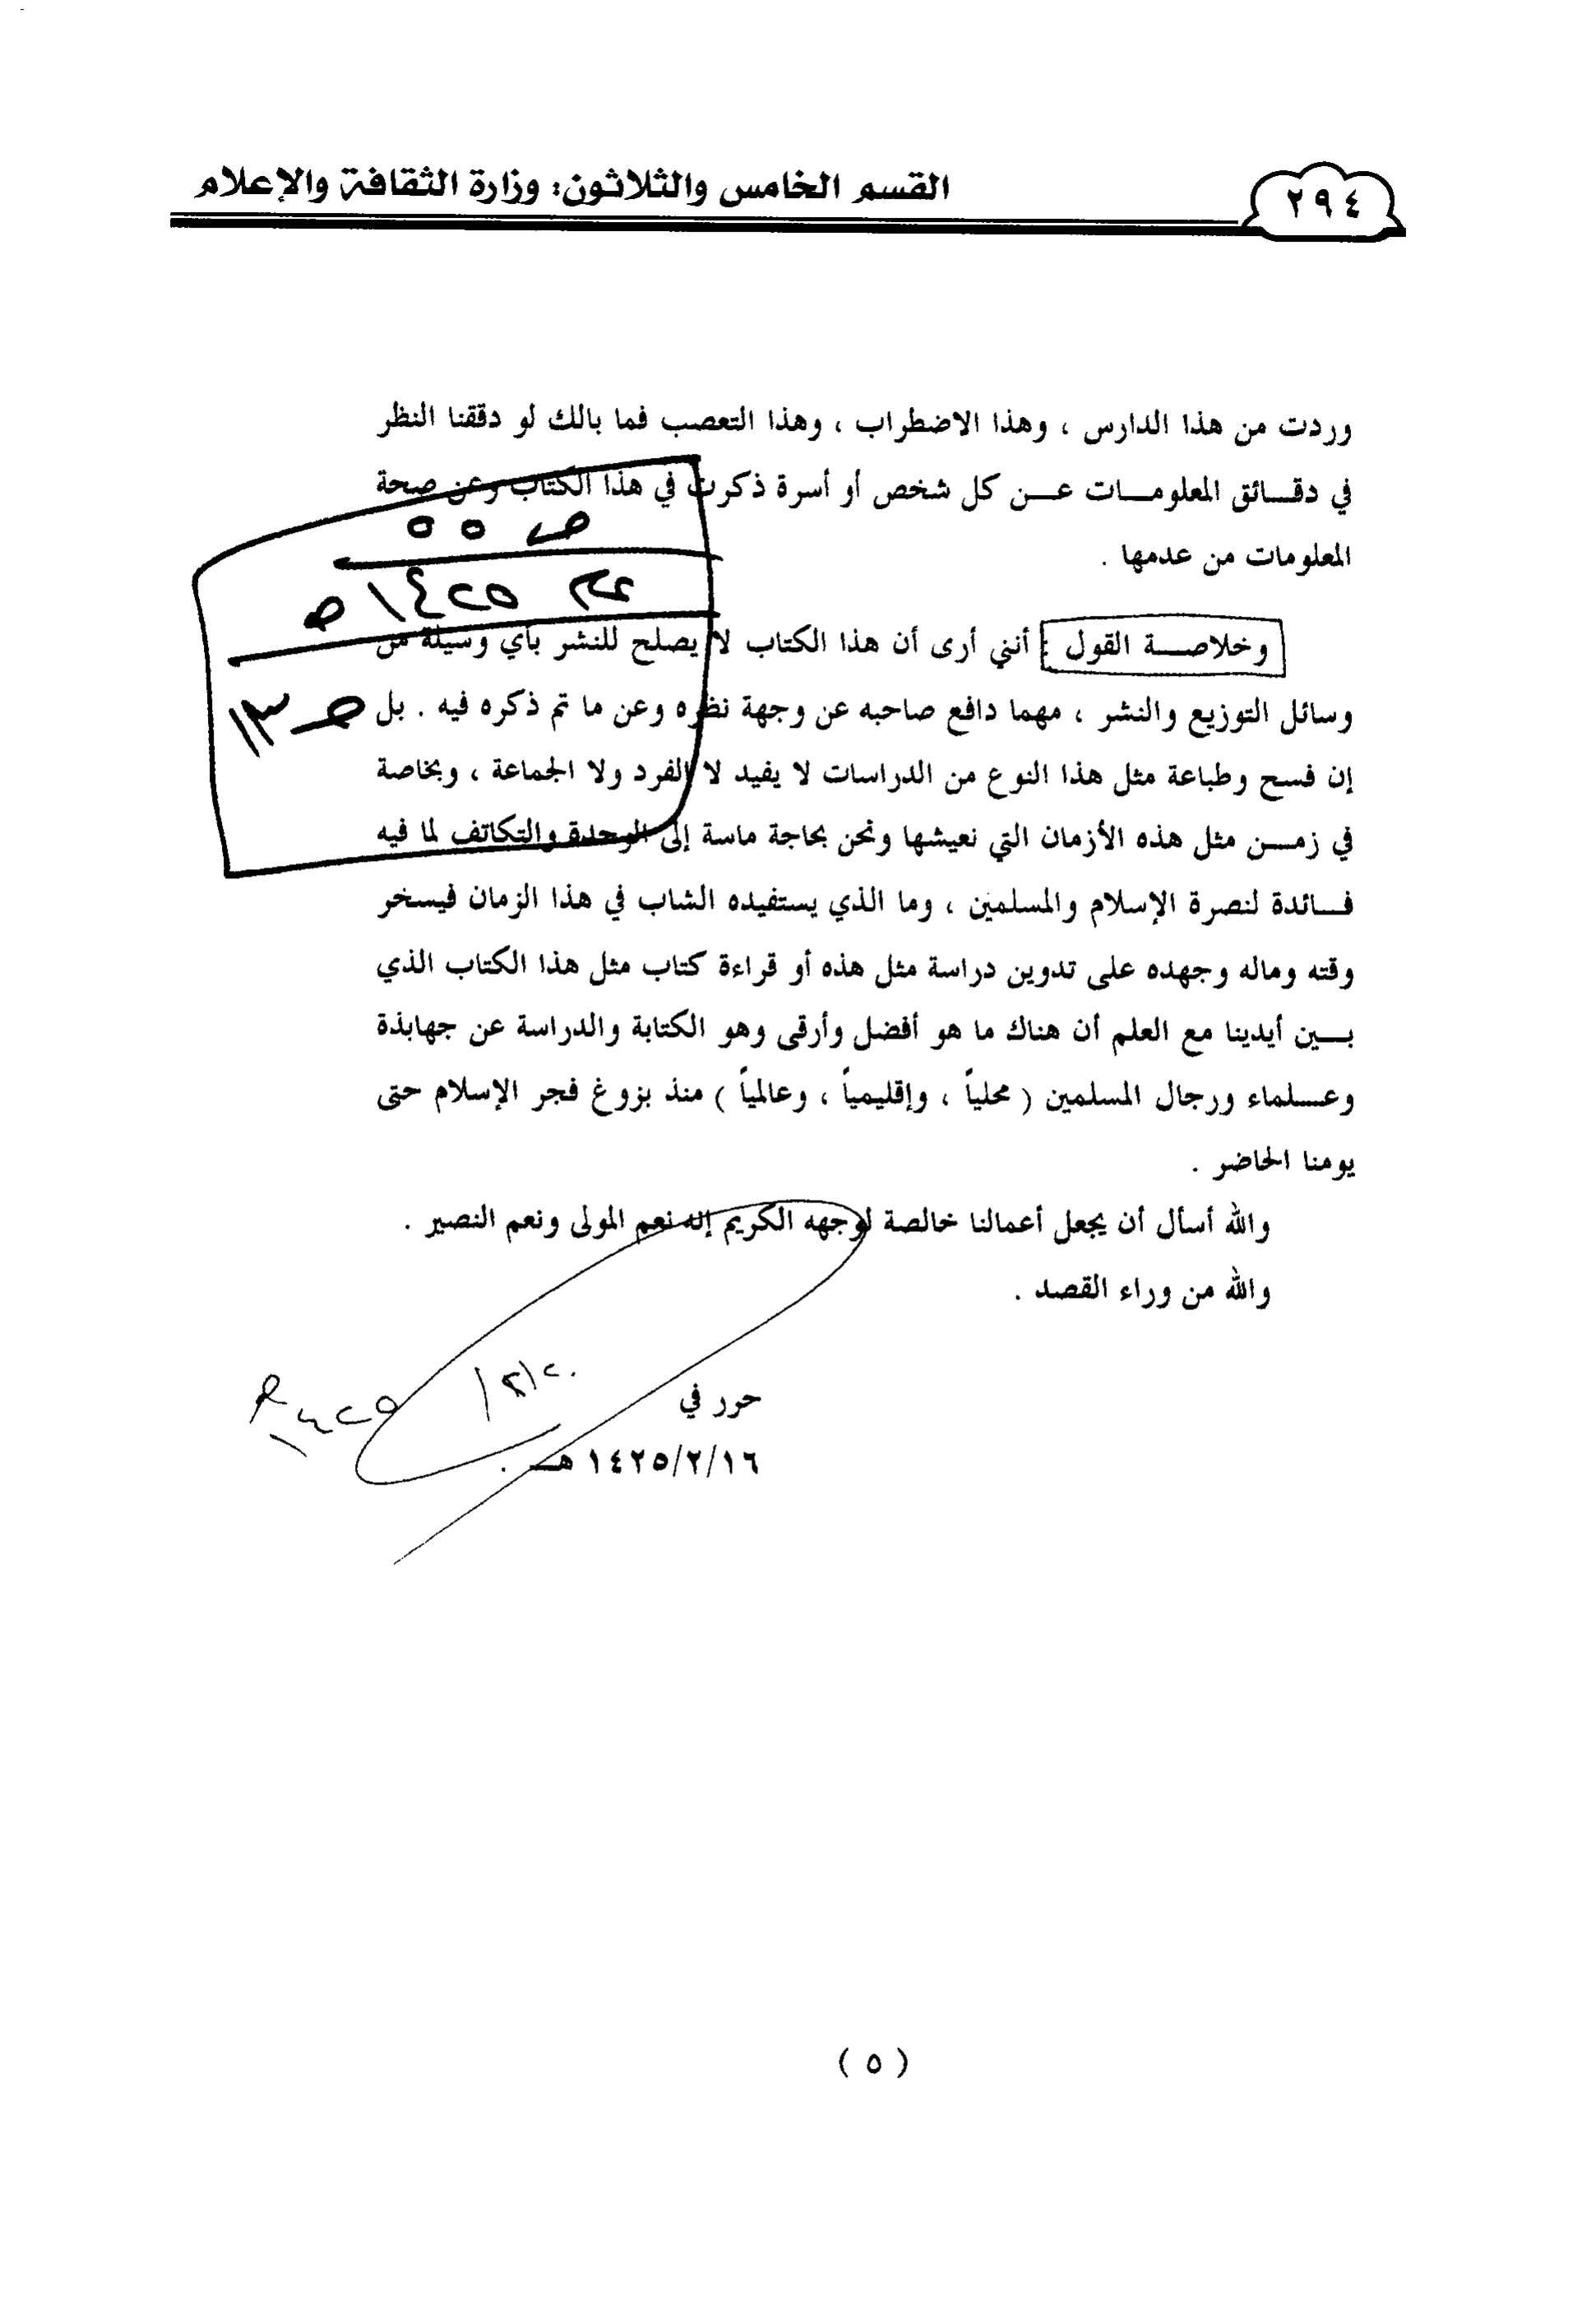 ٢٩٤
القسم الخامس والثلاثون: وزارة الثقافة والإعلام
وردت من هذا الدارس ، وهذا الاضطراب ، وهذا التعصب فما بالك لو دققنا النظر
في دقــائق المعلومــات عــن كل شخص أو أسرة ذكرت في هذا الكتاب وعن صحة
المعلومات من عدمها .
ص ٥٥
عام ١٤٢٥ هـ
وخلاصــة القول : أنني أرى أن هذا الكتاب لا يصلح للنشر بأي وسيلة من
وسائل التوزيع والنشر ، مهما دافع صاحبه عن وجهة نظره وعن ما تم ذكره فيه . بل
إن فسح وطباعة مثل هذا النوع من الدراسات لا يفيد لا الفرد ولا الجماعة ، وبخاصة
في زمــن مثل هذه الأزمان التي نعيشها ونحن بحاجة ماسة إلى الوحدة والتكاتف لما فيه
فــائدة لنصرة الإسلام والمسلمين ، وما الذي يستفيده الشاب في هذا الزمان فيسخر
وقته وماله وجهده على تدوين دراسة مثل هذه أو قراءة كتاب مثل هذا الكتاب الذي
بــين أيدينا مع العلم أن هناك ما هو أفضل وأرقى وهو الكتابة والدراسة عن جهابذة
وعــلماء ورجال المسلمين ( محلياً ، وإقليمياً ، وعالمياً ) منذ بزوغ فجر الإسلام حتى
يومنا الحاضر .
والله أسأل أن يجعل أعمالنا خالصة لوجهه الكريم إنه نعم المولى ونعم النصير .
والله من وراء القصد .
حرر في
١٤٢٥/٢/١٦ هــ .
( ٥ )